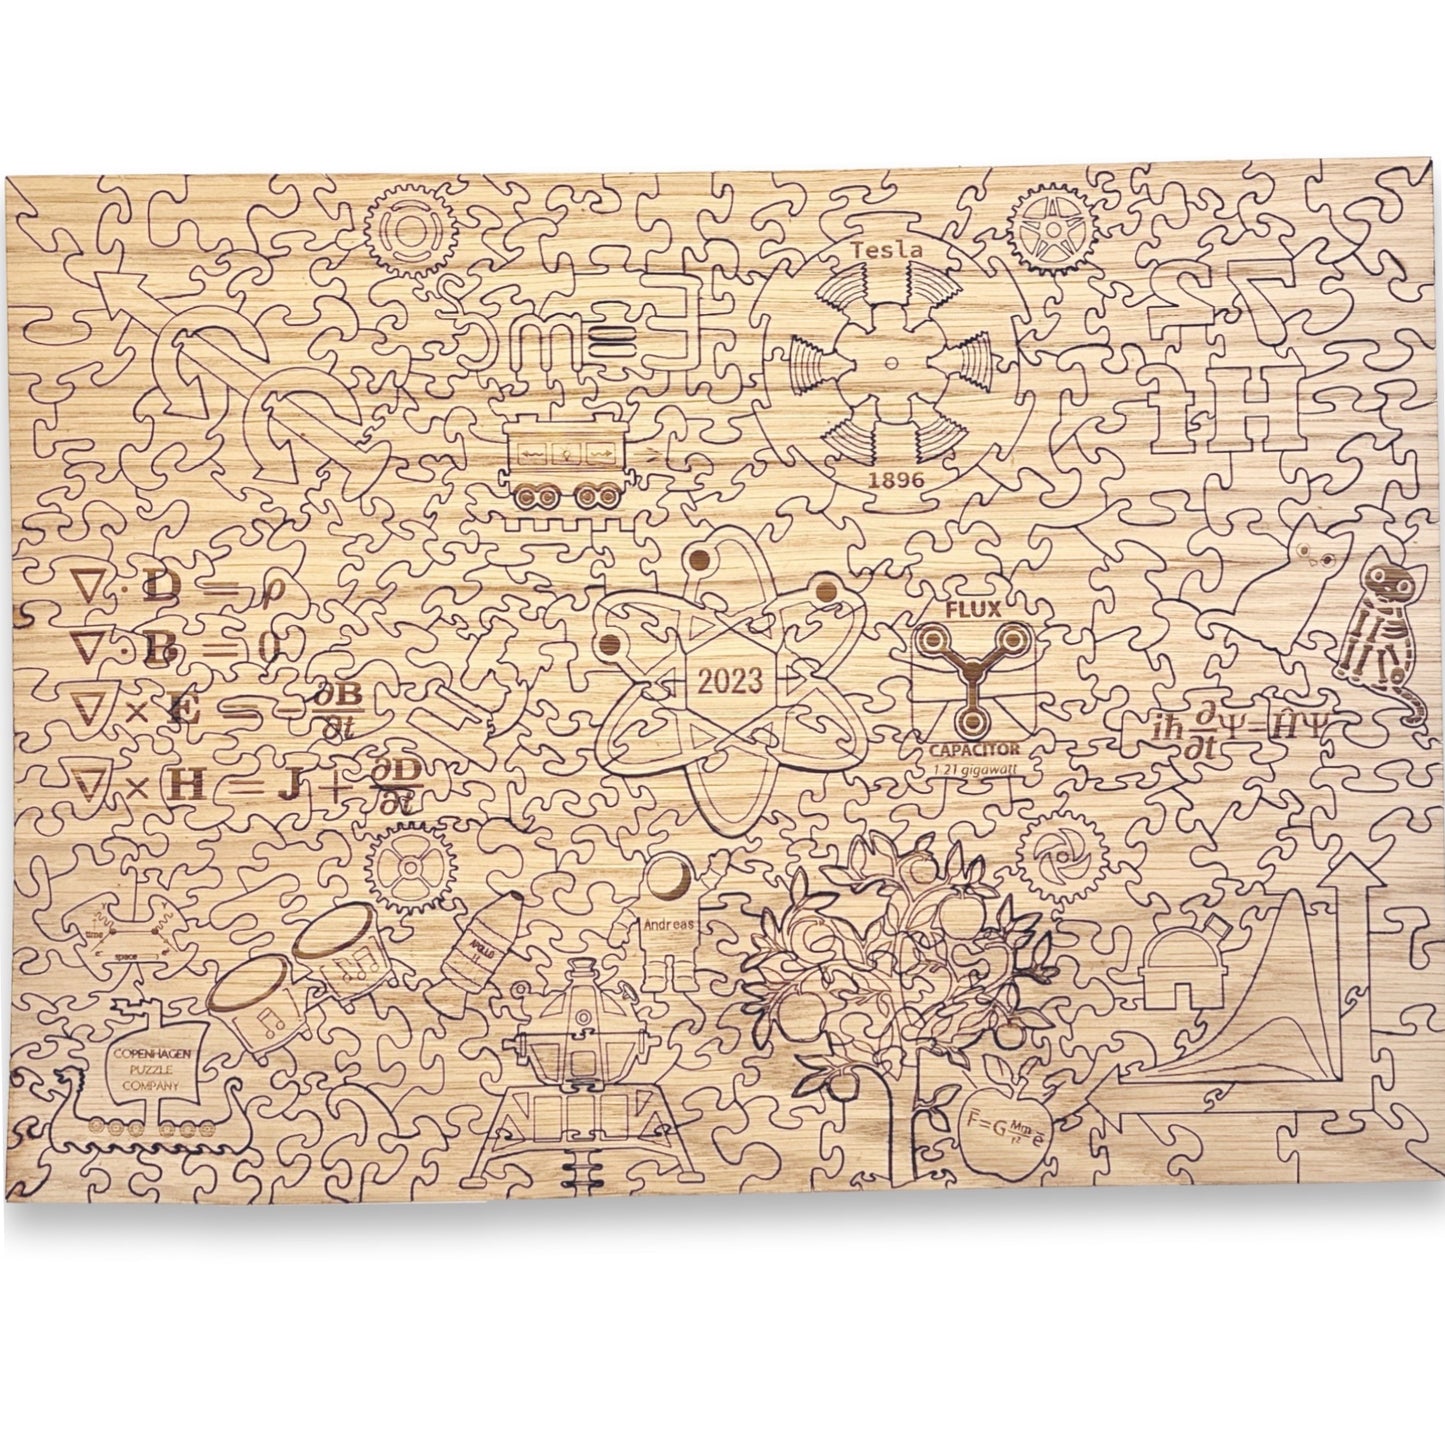 Tesla
E=mc²
22
Hf
1896
∇·D = ρ
∇·B = 0
∇×E = -∂B/∂t
∇×H = J + ∂D/∂t
2023
FLUX
CAPACITOR
1.21 gigawatt
iħ ∂/∂t Ψ=ĤΨ
time
space
APOLLO
11
Andreas
COPENHAGEN
PUZZLE
COMPANY
F̄=G Mm/r² ē